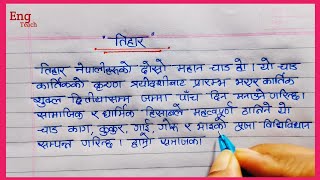 Eng
Teach
"तिहार"
तिहार नेपालीहरुको दोस्रो महान चाड हो। यो चाड
कार्तिकको कृष्ण त्रयोदशीबाट प्रारम्भ भएर कार्तिक
शुक्ल द्वितीयासम्म जम्मा पाँच दिन मनाइने गरिन्छ।
सामाजिक र धार्मिक हिसाबले महत्वपूर्ण मानिने यो
चाड काग, कुकुर, गाई, गोरु र भाइको पूजा विधिविधान
सम्पन्न गरिन्छ। हाम्रो समाजका